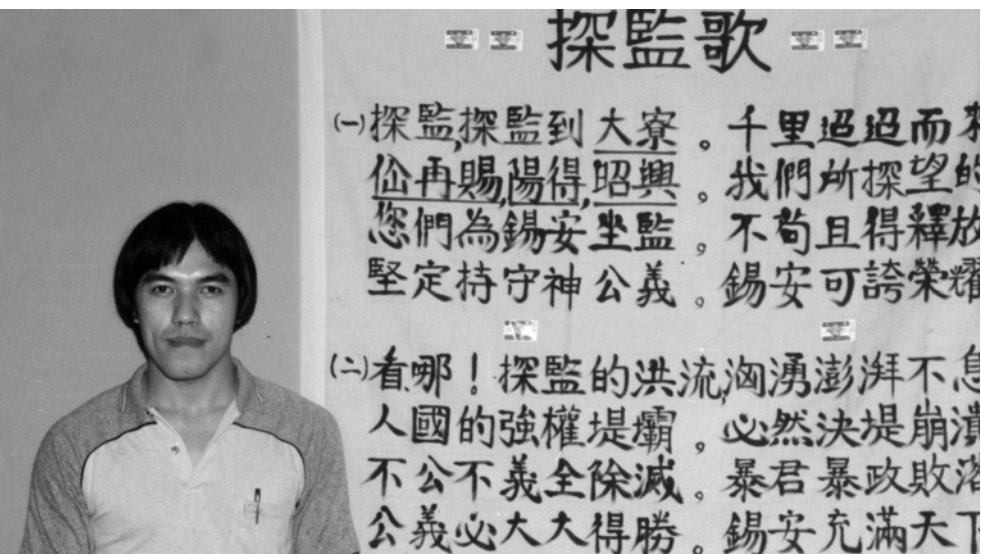 探監歌
(一)探監,探監到大寮。千里迢迢而
再賜,陽得,昭興。我們所探望的
您們為錫安坐監。不苟且得釋放
堅定持守神公義。錫安可誇榮耀
(二)看哪!探監的洪流,洶湧澎湃不息
人國的強權堤壩。必然決堤崩潰
不公不義全除滅。暴君暴政敗落
公義必大大得勝。錫安充滿天下